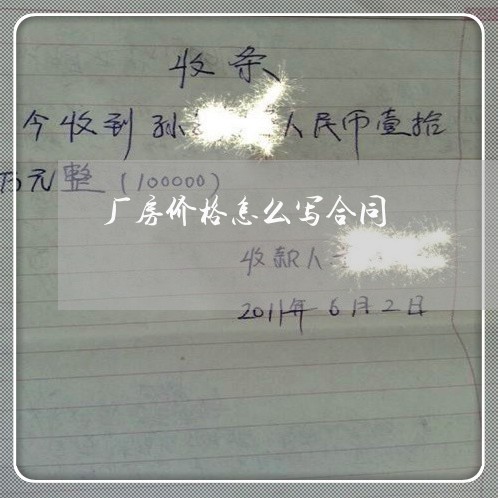 收条
今收到孙 人民币壹拾
万元整（100000）
厂房价格怎么写合同
收款人
2011年6月2日